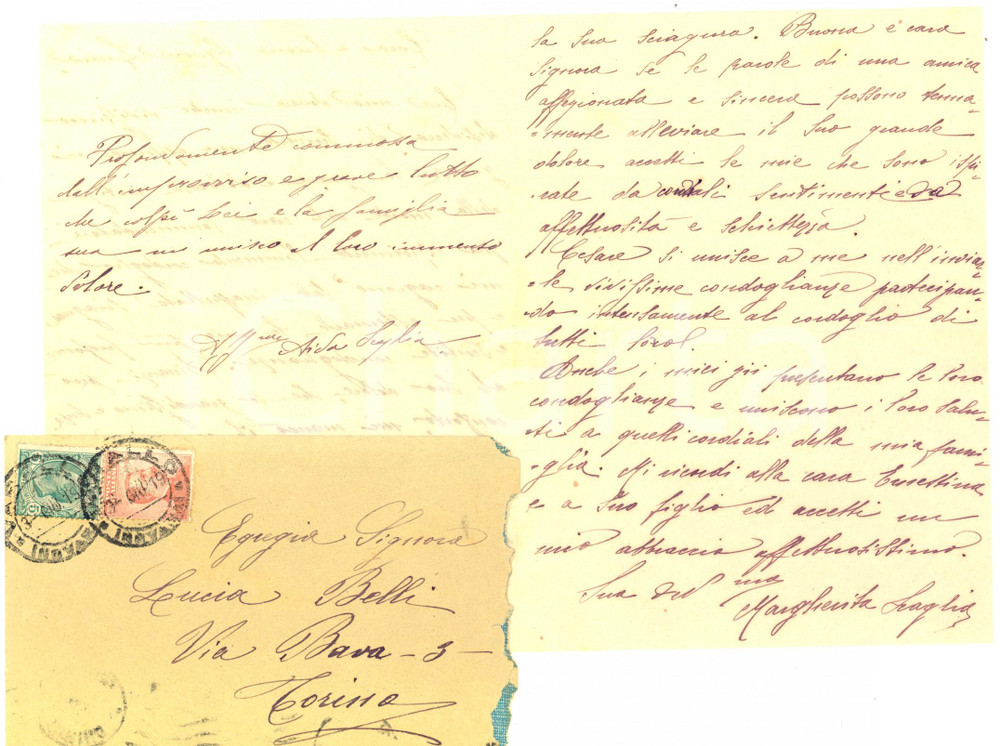 Profondamente commossa
dall'improvviso e grave lutto
che colpì Lei e la famiglia
sua mi unisco al loro immenso
dolore.
Aff.ma Aida Scaglia
la Sua sciagura. Buona e cara
Signora se le parole di una amica
affezionata e sincera possono tenua-
-mente alleviare il Suo grande
dolore accetti le mie che sono ispi-
rate da cordiali sentimenti e da
affettuosità e schiettezza.
Cesare si unisce a me nell'inviar-
-le vivissime condoglianze partecipan-
do intensamente al cordoglio di
tutti loro.
Anche i miei presentano le loro
condoglianze e uniscono i loro salu-
ti a quelli cordiali della mia fami-
-glia. Mi ricordi alla cara
e a Suo figlio ed accetti un
mio abbraccio affettuosissimo.
Sua
Margherita Scaglia
Egregia Signora
Lucia Belli
Via Bava - 3 -
Torino